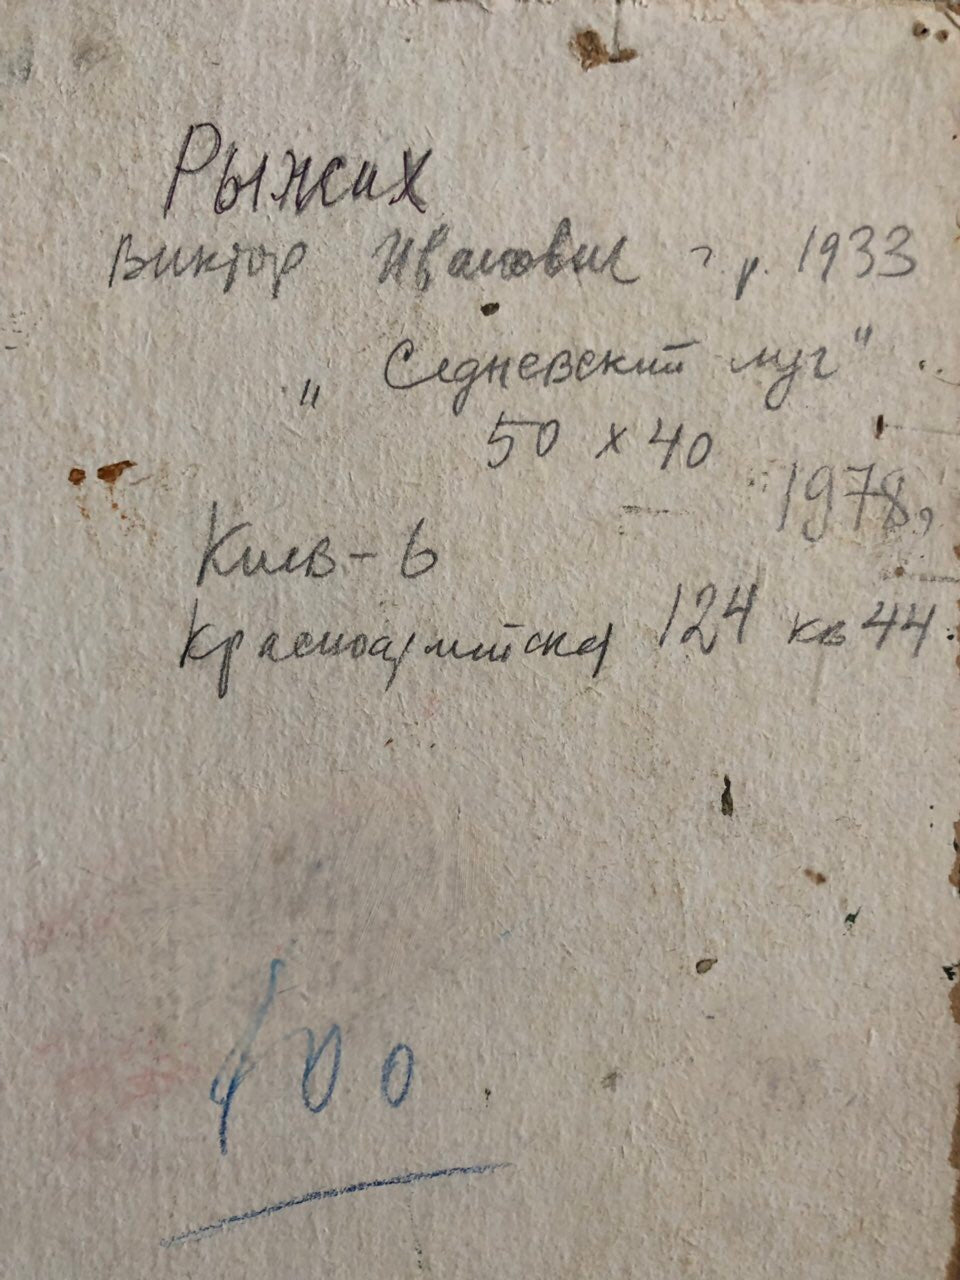 Рыжих
Виктор Иванович г. р. 1933
„Седневский луг"
50 x 40
1978г
Киев-6
Красноармейская 124 кв 44.
100